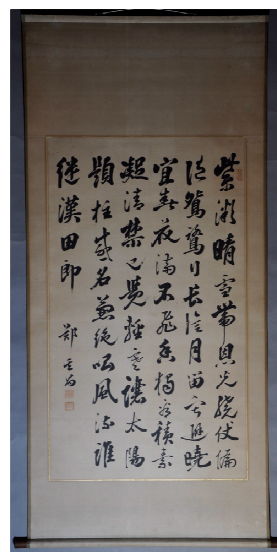 紫微晴雪帶恩光繞仗偏
隨鴛鷺行長信月留寧避曉
宜春花滿不飛香獨看積素
凝清禁已覺輕寒讓太陽
題柱盛名兼絶唱風流誰
継漢田郎
鄭